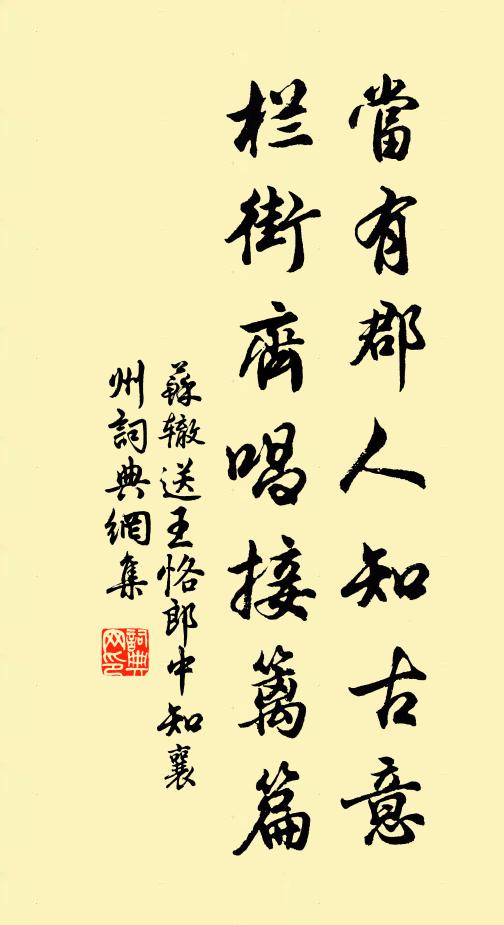 當有郡人知古意
栏街齊唱接篱篇
蘇辙送王恪郎中知襄
州詞典網集
詞典
网印